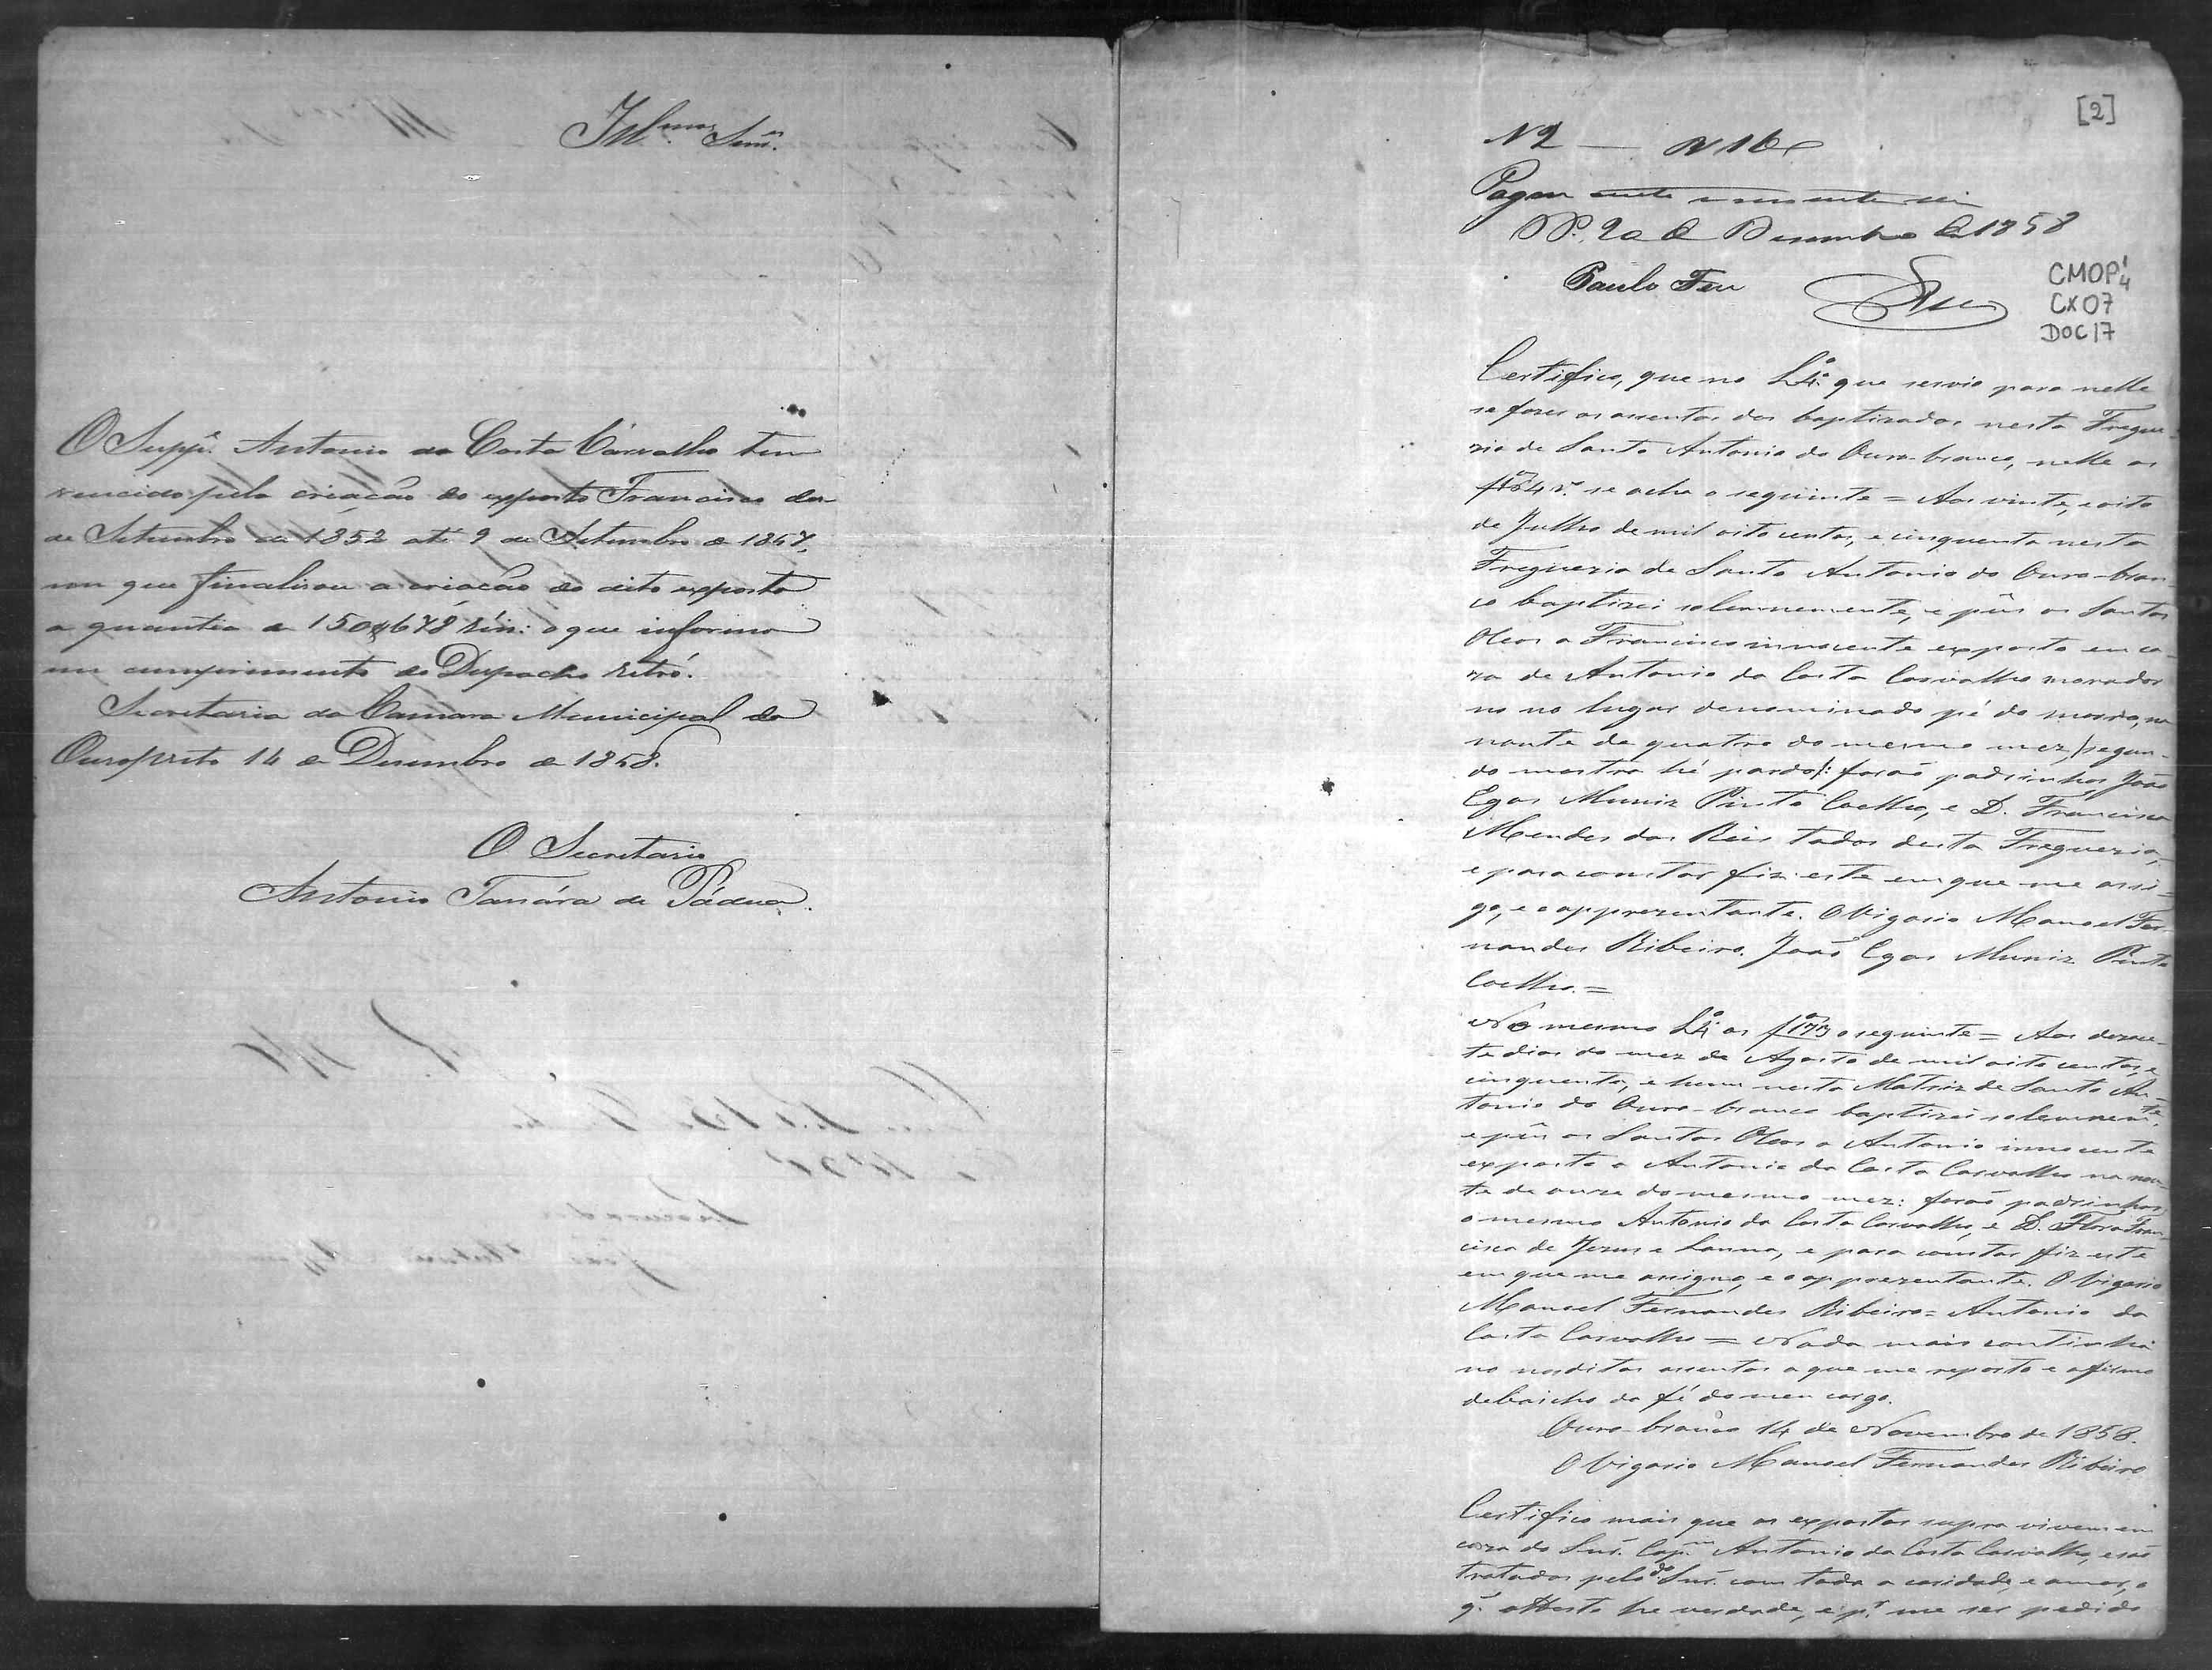 Ill.mos Snr.es
O Supp.e Antonio da Costa Carvalho tem
vencido pela criação do exposto Francisco des-
de Setembro de 1852 até 9 de Setembro de 1857,
em que finalisou a criação do dito exposto
a quantia de 150$678 réis: o que informo
em cumprimento do Despacho retró.
Secretaria da Camara Municipal do
Ouropreto 14 de Dezembro de 1858.
O Secretario
Antonio de Pádua.
[2]
N 2 — N 16
Pague
OP. 20 de Dezembro de 1858
Paulo
CMOP 1/4
CX07
DOC 17
Certifico, que no L.º 4.º que servio para nelle
se fazer os assentos dos baptizados nesta Fregue-
zia de Santo Antonio do Ouro-branco, nelle as
f 164 v. se acha o seguinte = Aos vinte, e oito
de Julho de mil oito centos, e cinquenta nesta
Freguezia de Santo Antonio do Ouro-bran-
co baptizei solemnemente, e pûs os Santos
Oleos a Francisco innocente exposto em ca-
za de Antonio da Costa Carvalho morador
no no lugar denominado pé do morro, na
noute de quatro do mesmo mez, /segun-
do mostra hé pardo/: forão padrinhos João
Egas Muniz Pinto Coelho, e D. Francisca
Mendes dos Reis todos desta Freguezia,
e para constar fiz este em que me assi-
go, e o apprezentante. O Vigario Manoel Fer-
nandes Ribeiro. João Egas Muniz Pinto
Coelho. =
No mesmo L.º 4.º as f 173 o seguinte = Aos dezase-
te dias do mez de Agosto de mil oito centos, e
cinquenta, e hum nesta Matriz de Santo An-
tonio do Ouro-branco baptizei solemnem.te,
e pûs os Santos Oleos a Antonio innocente
exposto a Antonio da Costa Carvalho na nou-
te de onze do mesmo mez: forão padrinhos
o mesmo Antonio da Costa Carvalho, e D. Flora Fran-
cisca de Jezus e Lanna, e para constar fiz este
em que me assigno, e o apprezentante. O Vigario
Manoel Fernandes Ribeiro = Antonio da
Costa Carvalho = Nada mais continha
no nos ditos assentos a que me reporto e afirmo
debaicho da fé do meu cargo.
Ouro-branco 14 de Novembro de 1858.
O Vigario Manoel Fernandes Ribeiro
Certifico mais que os expostos supra vivem em
caza do Snr. Cap.m Antonio da Costa Carvalho, e são
tratados pelo d.o Snr. com toda a caridade, e amor, o
q. attesto he verdade, e p.r me ser pedido